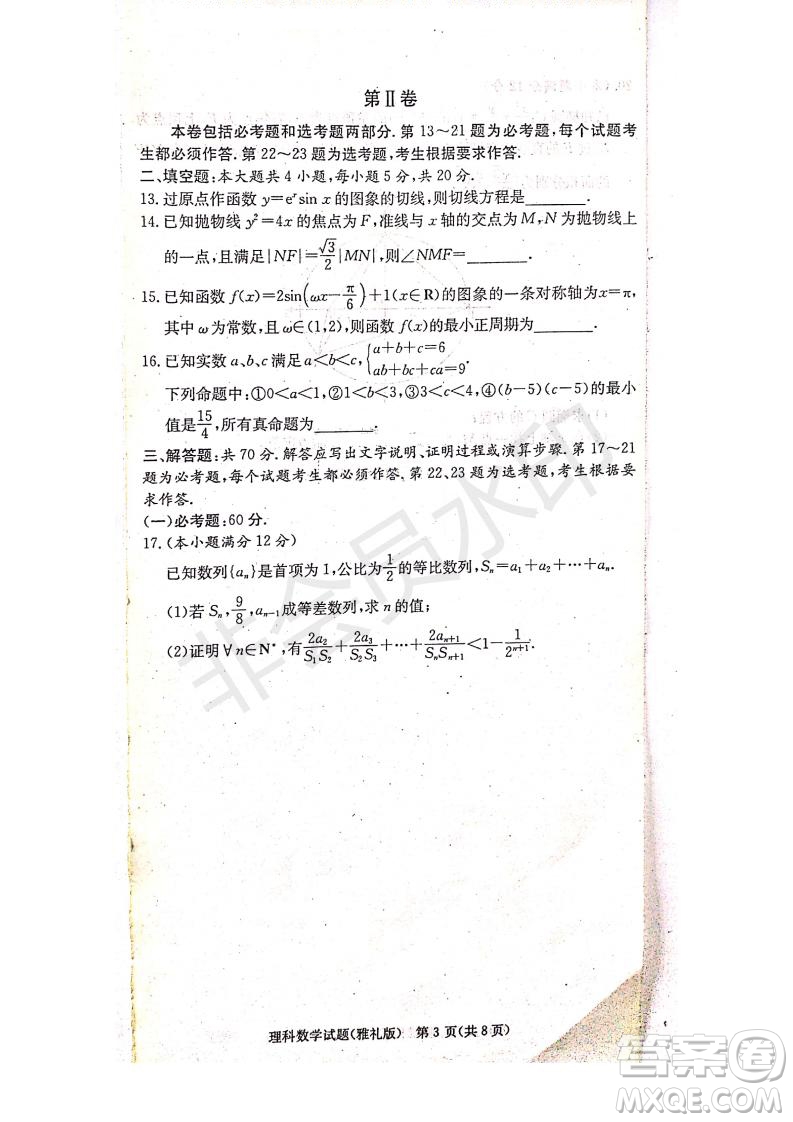 第Ⅱ卷
本卷包括必考题和选考题两部分.第13～21题为必考题,每个试题考
生都必须作答.第22～23题为选考题,考生根据要求作答.
二、填空题:本大题共4小题,每小题5分,共20分.
13.过原点作函数y=eˣsin x的图象的切线,则切线方程是________.
14.已知抛物线y²=4x的焦点为F,准线与x轴的交点为M,N为抛物线上
的一点,且满足|NF|=√3/2|MN|,则∠NMF=________.
15.已知函数f(x)=2sin(ωx-π/6)+1(x∈R)的图象的一条对称轴为x=π,
其中ω为常数,且ω∈(1,2),则函数f(x)的最小正周期为________.
16.已知实数a、b、c满足a<b<c,{a+b+c=6
ab+bc+ca=9.
下列命题中:①0<a<1,②1<b<3,③3<c<4,④(b-5)(c-5)的最小
值是15/4,所有真命题为________.
三、解答题:共70分.解答应写出文字说明、证明过程或演算步骤.第17～21
题为必考题,每个试题考生都必须作答.第22、23题为选考题,考生根据要
求作答.
(一)必考题:60分.
17.(本小题满分12分)
已知数列{aₙ}是首项为1,公比为1/2的等比数列,Sₙ=a₁+a₂+⋯+aₙ.
(1)若Sₙ,9/8,aₙ₋₁成等差数列,求n的值;
(2)证明∀n∈N*,有2a₂/S₁S₂+2a₃/S₂S₃+⋯+2aₙ₊₁/SₙSₙ₊₁<1-1/2ⁿ⁺¹.
非会员水印
理科数学试题(雅礼版) 第3页(共8页)
答案卷
MXQE.COM